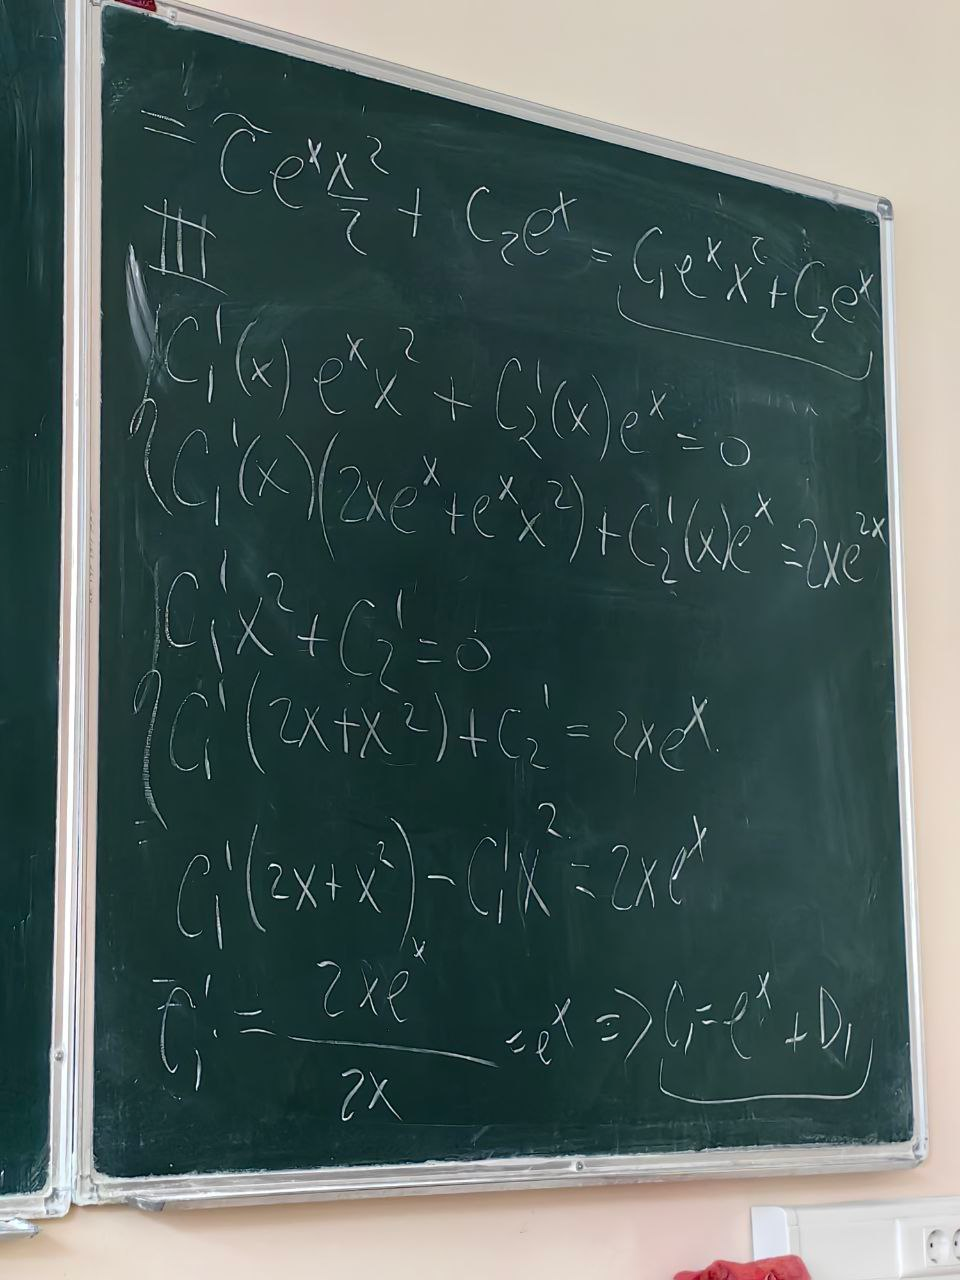 = C̃eˣ x²/2 + C₂eˣ = C₁eˣx² + C₂eˣ
III
{ C₁'(x) eˣx² + C₂'(x)eˣ = 0
C₁'(x)(2xeˣ + eˣx²) + C₂'(x)eˣ = 2xe²ˣ
{ C₁'x² + C₂' = 0
C₁'(2x + x²) + C₂' = 2xeˣ
C₁'(2x + x²) - C₁'x² = 2xeˣ
C₁' = 2xeˣ/2x = eˣ ⇒ C₁ = eˣ + D₁